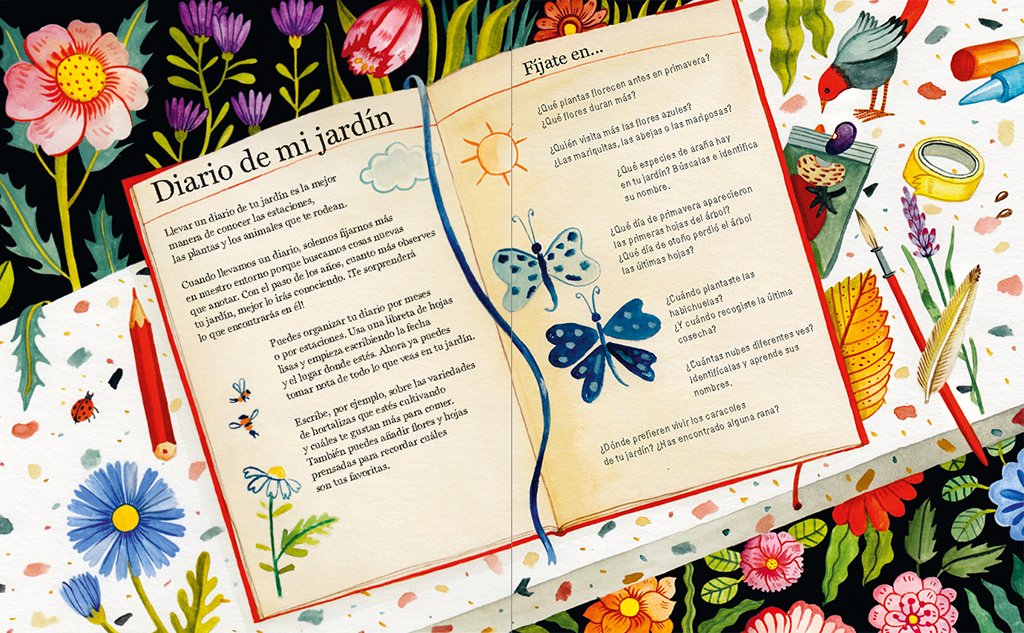 Diario de mi jardín
Llevar un diario de tu jardín es la mejor
manera de conocer las estaciones,
las plantas y los animales que te rodean.
Cuando llevamos un diario, solemos fijarnos más
en nuestro entorno porque buscamos cosas nuevas
que anotar. Con el paso de los años, cuanto más observes
tu jardín, mejor lo irás conociendo. ¡Te sorprenderá
lo que encontrarás en él!
Puedes organizar tu diario por meses
o por estaciones. Usa una libreta de hojas
lisas y empieza escribiendo la fecha
y el lugar donde estés. Ahora ya puedes
tomar nota de todo lo que veas en tu jardín.
Escribe, por ejemplo, sobre las variedades
de hortalizas que estés cultivando
y cuáles te gustan más para comer.
También puedes añadir flores y hojas
prensadas para recordar cuáles
son tus favoritas.
Fíjate en...
¿Qué plantas florecen antes en primavera?
¿Qué flores duran más?
¿Quién visita más las flores azules?
¿Las mariquitas, las abejas o las mariposas?
¿Qué especies de araña hay
en tu jardín? Búscalas e identifica
su nombre.
¿Qué día de primavera aparecieron
las primeras hojas del árbol?
¿Qué día de otoño perdió el árbol
las últimas hojas?
¿Cuándo plantaste las
habichuelas?
¿Y cuándo recogiste la última
cosecha?
¿Cuántas nubes diferentes ves?
Identifícalas y aprende sus
nombres.
¿Dónde prefieren vivir los caracoles
de tu jardín? ¿Has encontrado alguna rana?